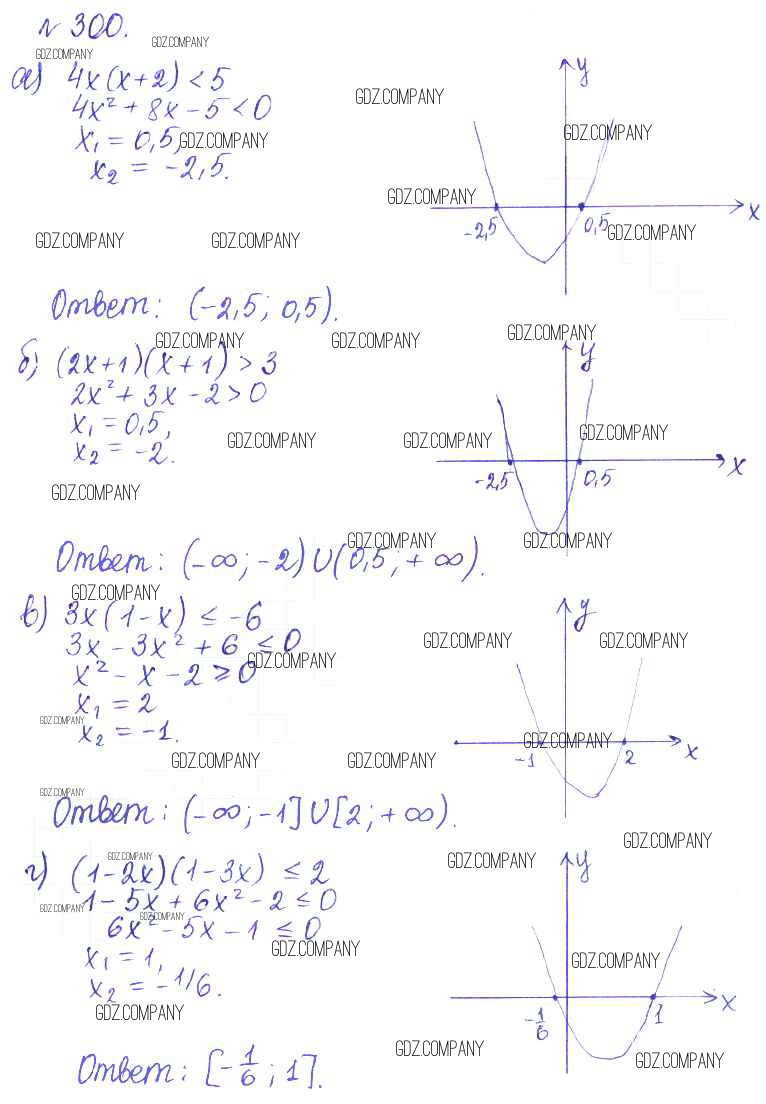 № 300.
GDZ.COMPANY GDZ.COMPANY
а) 4x(x+2) < 5
4x² + 8x - 5 < 0
x₁ = 0,5, GDZ.COMPANY
x₂ = -2,5.
GDZ.COMPANY GDZ.COMPANY
y
GDZ.COMPANY
GDZ.COMPANY
GDZ.COMPANY
x
-2,5 0,5 GDZ.COMPANY
Ответ: (-2,5; 0,5).
GDZ.COMPANY GDZ.COMPANY GDZ.COMPANY
б) (2x+1)(x+1) > 3
2x² + 3x - 2 > 0
x₁ = 0,5,
x₂ = -2.
GDZ.COMPANY GDZ.COMPANY GDZ.COMPANY
y
x
-2,5 0,5
GDZ.COMPANY
GDZ.COMPANY GDZ.COMPANY
Ответ: (-∞; -2) ∪ (0,5; +∞).
GDZ.COMPANY
в) 3x(1-x) ≤ -6
3x - 3x² + 6 ≤ 0
GDZ.COMPANY
x² - x - 2 ≥ 0
x₁ = 2
GDZ.COMPANY
x₂ = -1.
GDZ.COMPANY GDZ.COMPANY
y
GDZ.COMPANY GDZ.COMPANY
GDZ.COMPANY
x
-1 2
GDZ.COMPANY
Ответ: (-∞; -1] ∪ [2; +∞).
GDZ.COMPANY
GDZ.COMPANY GDZ.COMPANY
г) (1-2x)(1-3x) ≤ 2
1 - 5x + 6x² - 2 ≤ 0
GDZ.COMPANY GDZ.COMPANY
6x² - 5x - 1 ≤ 0
GDZ.COMPANY
x₁ = 1,
x₂ = -1/6.
GDZ.COMPANY
y
GDZ.COMPANY
x
-1/6 1
GDZ.COMPANY GDZ.COMPANY
Ответ: [-1/6; 1].